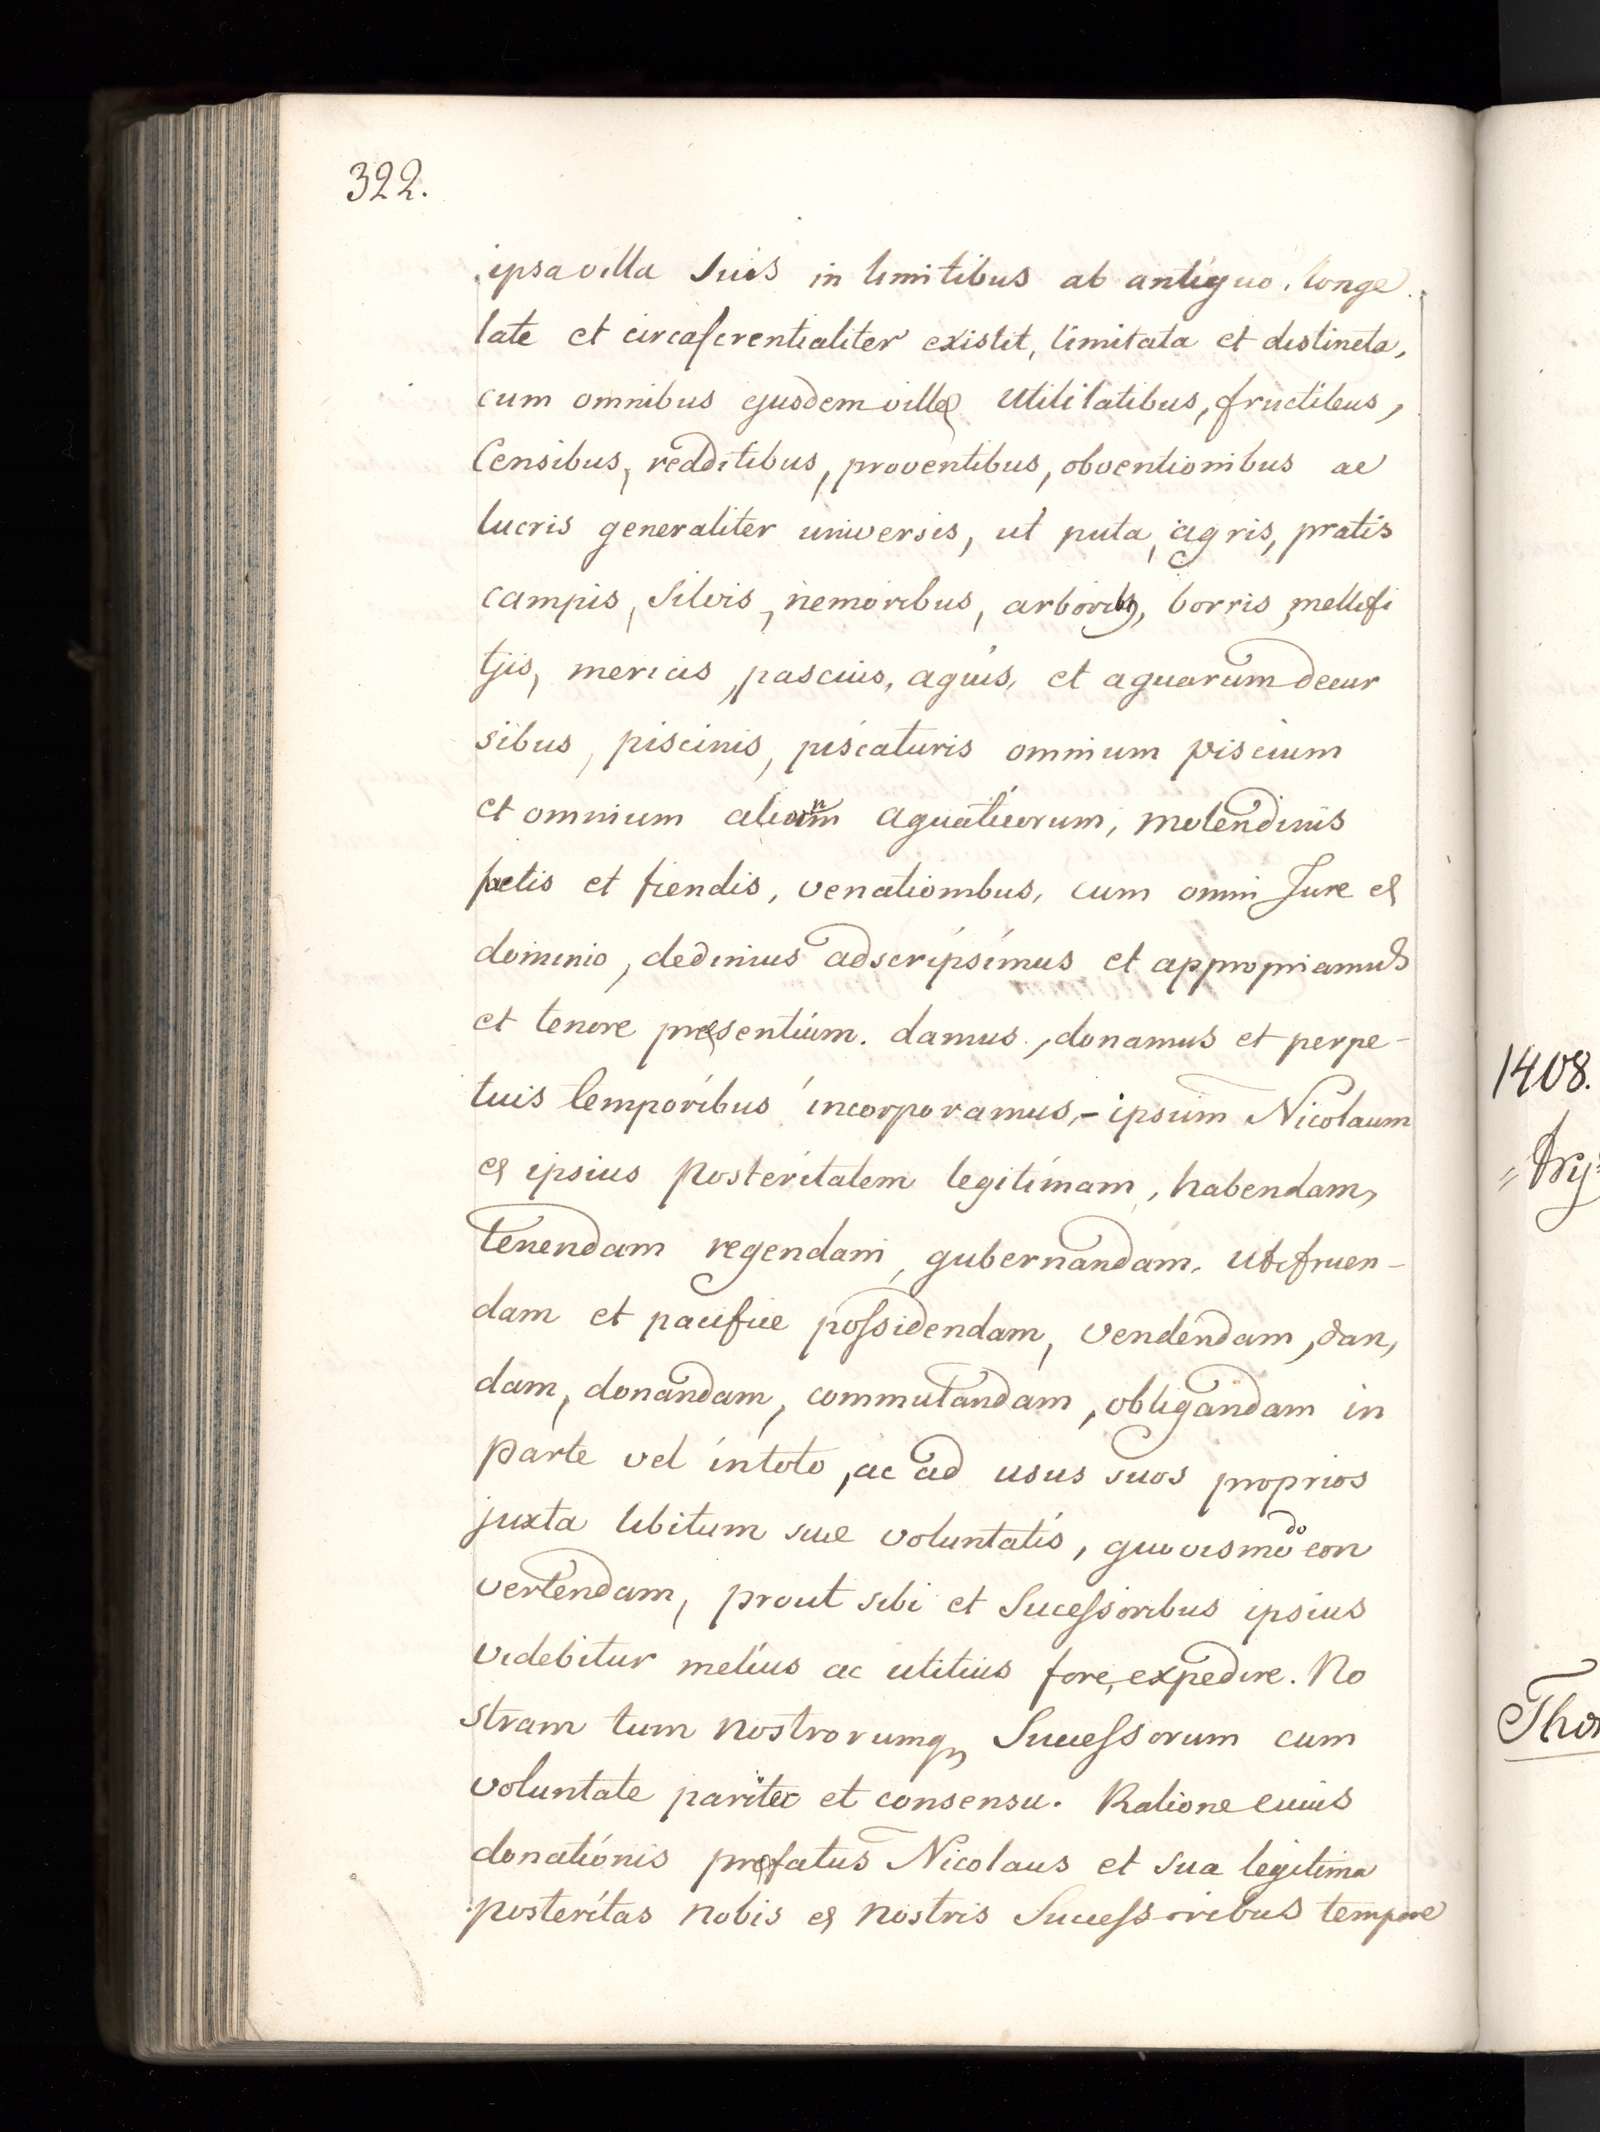 322.
ipsa villa suis in limitibus ab antiquo, longe
late et circaferentialiter existit, limitata et distincta,
cum omnibus ejusdem villæ utilitatibus, fructibus,
Censibus, redditibus, proventibus, obventionibus ac
lucris generaliter universis, ut puta, agris, pratis
campis, silvis, nemoribus, arborib9, borris, mellifi
tjis, mericis, pascuis, aquis, et aquarum decur
sibus, piscinis, piscaturis omnium piscium
et omnium aliarum aquaticorum, molendinis
factis et fiendis, venationibus, cum omni Jure et
dominio, dedimus adscripsimus et appropriamus
et tenore præsentium. damus, donamus et perpe-
tuis temporibus incorporamus,- ipsum Nicolaum
et ipsius posteritatem legitimam, habendam,
tenendam regendam, gubernandam, utifruen-
dam et pacifice possidendam, vendendam, dan,
dam, donandam, commutandam, obligandam in
parte vel in toto, ac ad usus suos proprios
juxta libitum suæ voluntatis, quovismodo con
vertendam, prout sibi et Sucessoribus ipsius
videbitur melius ac utilius fore, expedire. No
stram tum nostrorumq, Successorum cum
voluntate pariter et consensu. Ratione cuius
donationis præfatus Nicolaus et sua legitima
posteritas nobis et nostris Successoribus tempore
1408.